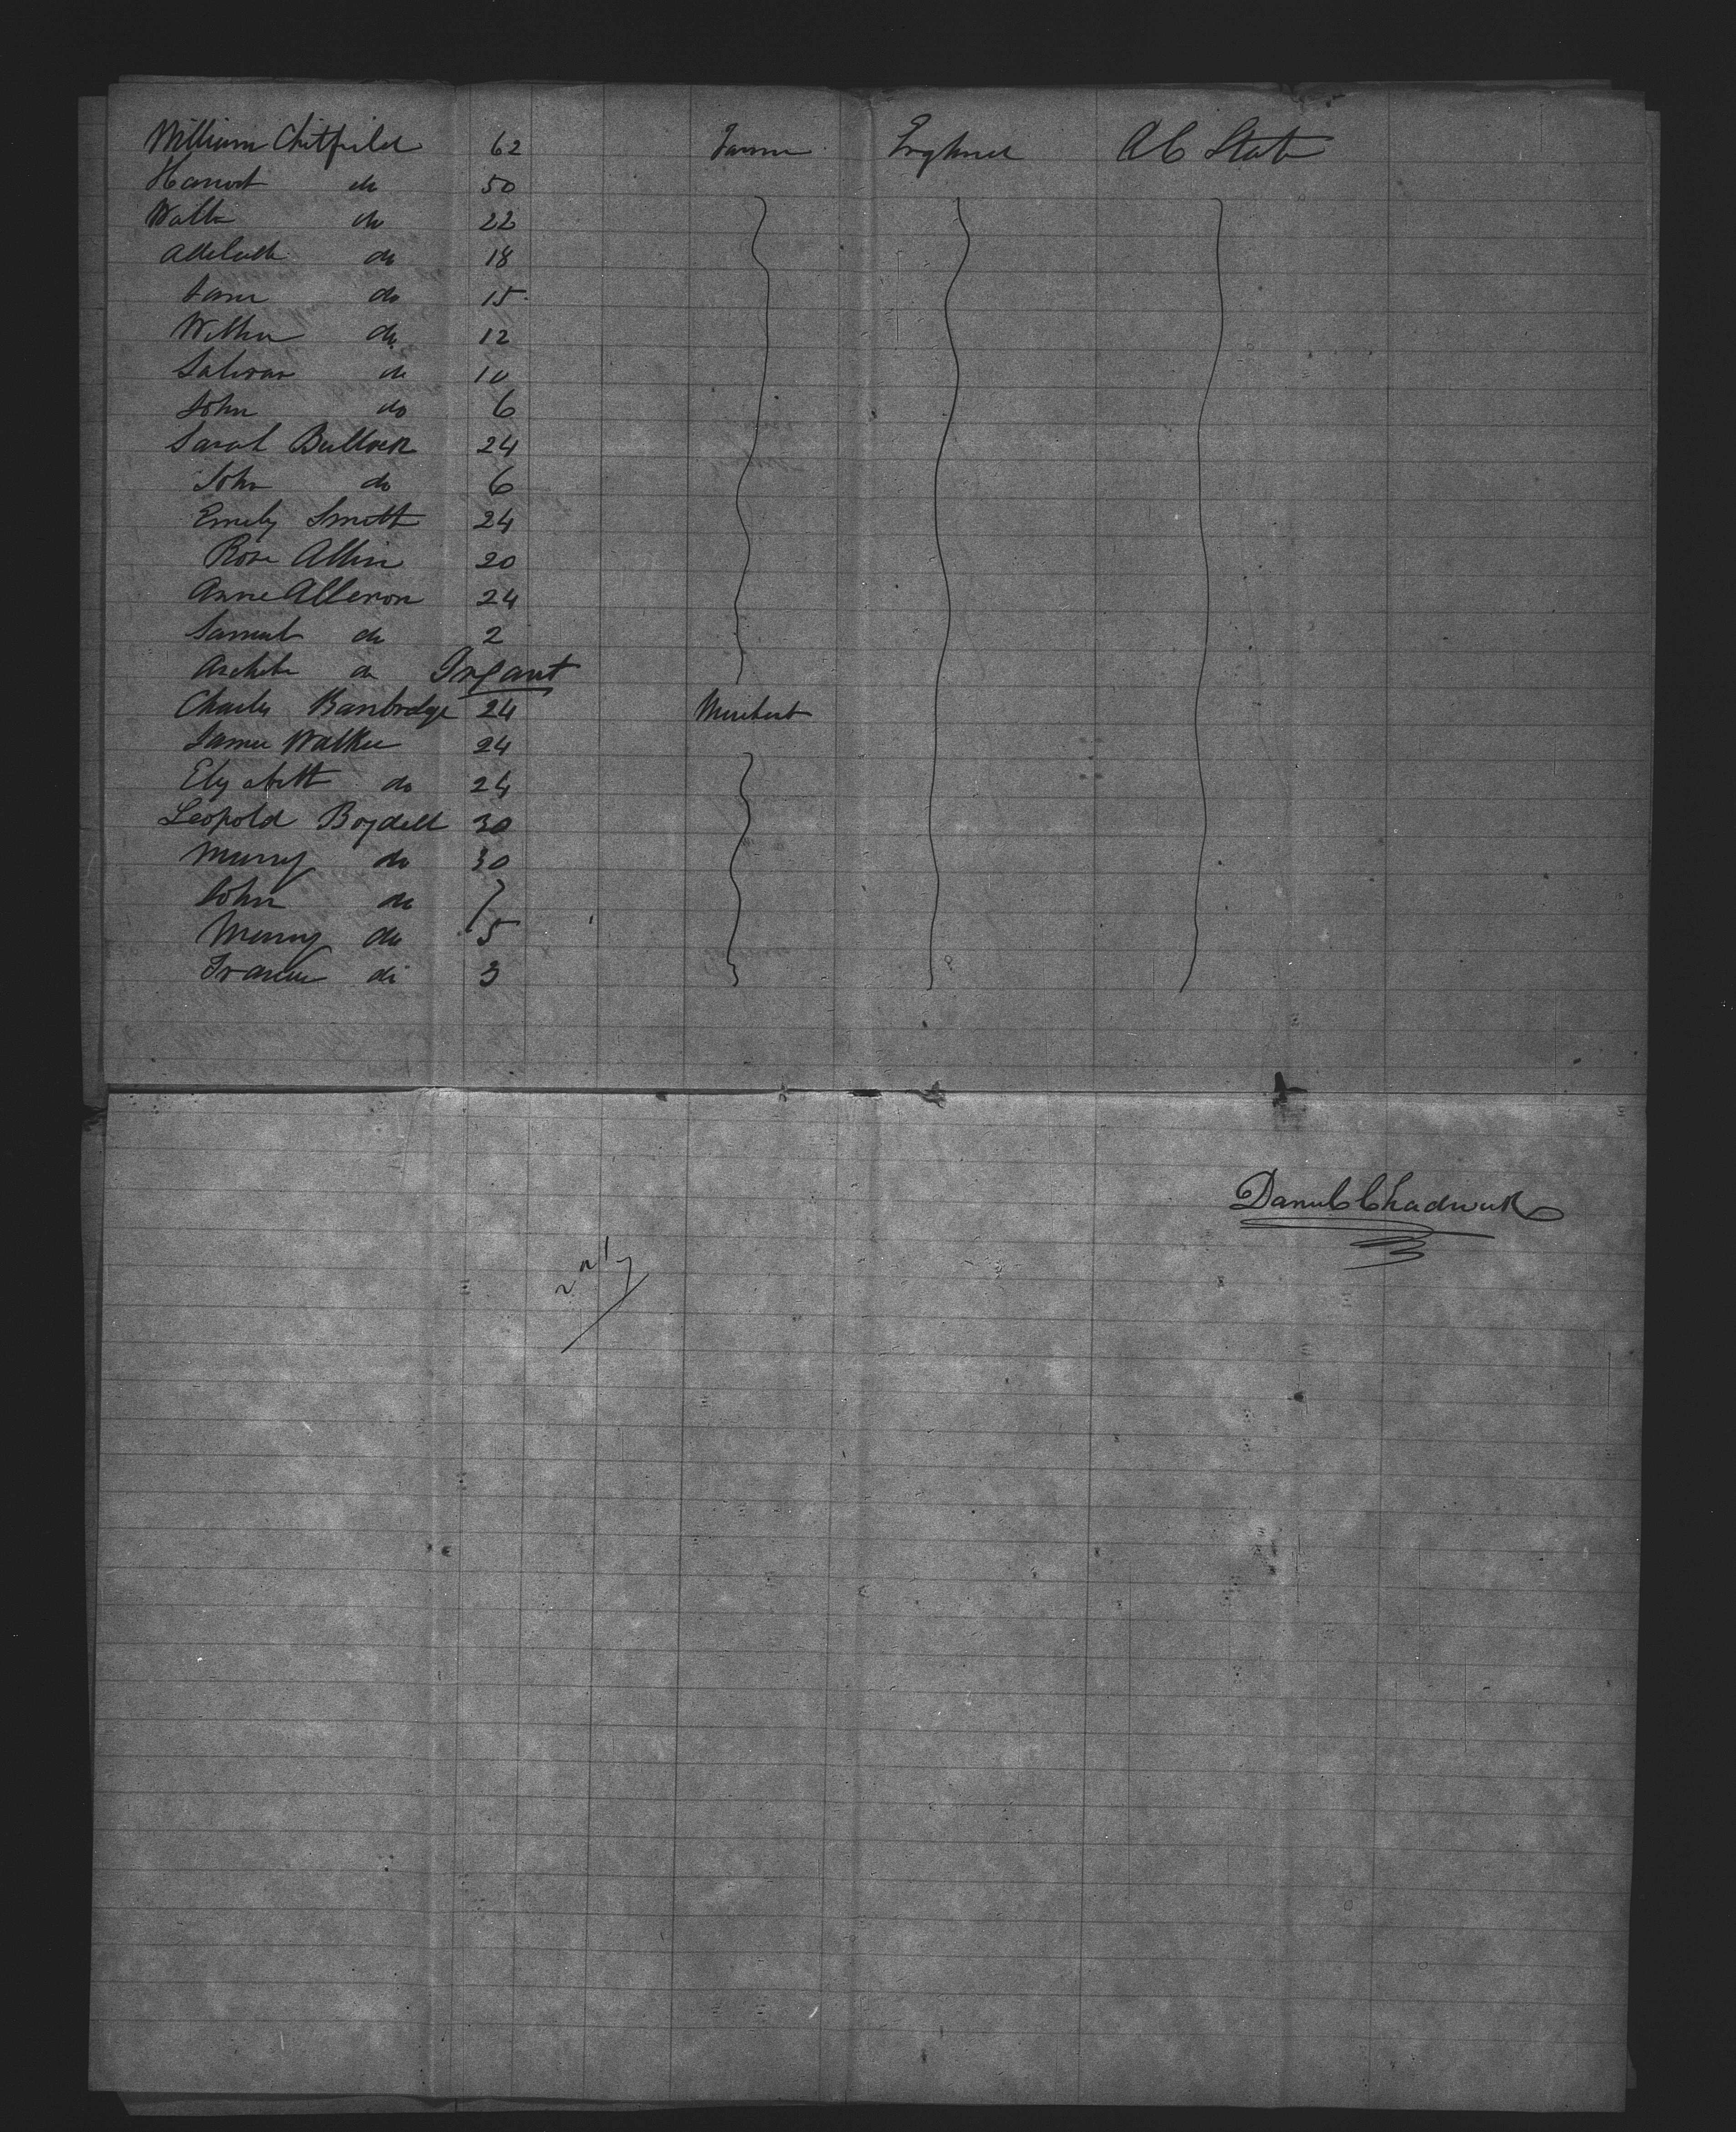 William Chitfield 62 Farmer England U States
Harriet do 50
Walter do 22
Adelaide do 18
Jane do 15
do 12
do 10
John do 6
Sarah Bullock 24
John do 6
Emely Smith 24
Rose Allin 20
Anne Allenson 24
Samuel do 2
do Infant
Charles Banbridge 24
James Walker 24
Elyzabeth do 24
Leopold Bozdell 30
do 30
John do 7
do 5
do 3
Daniel Chadwick